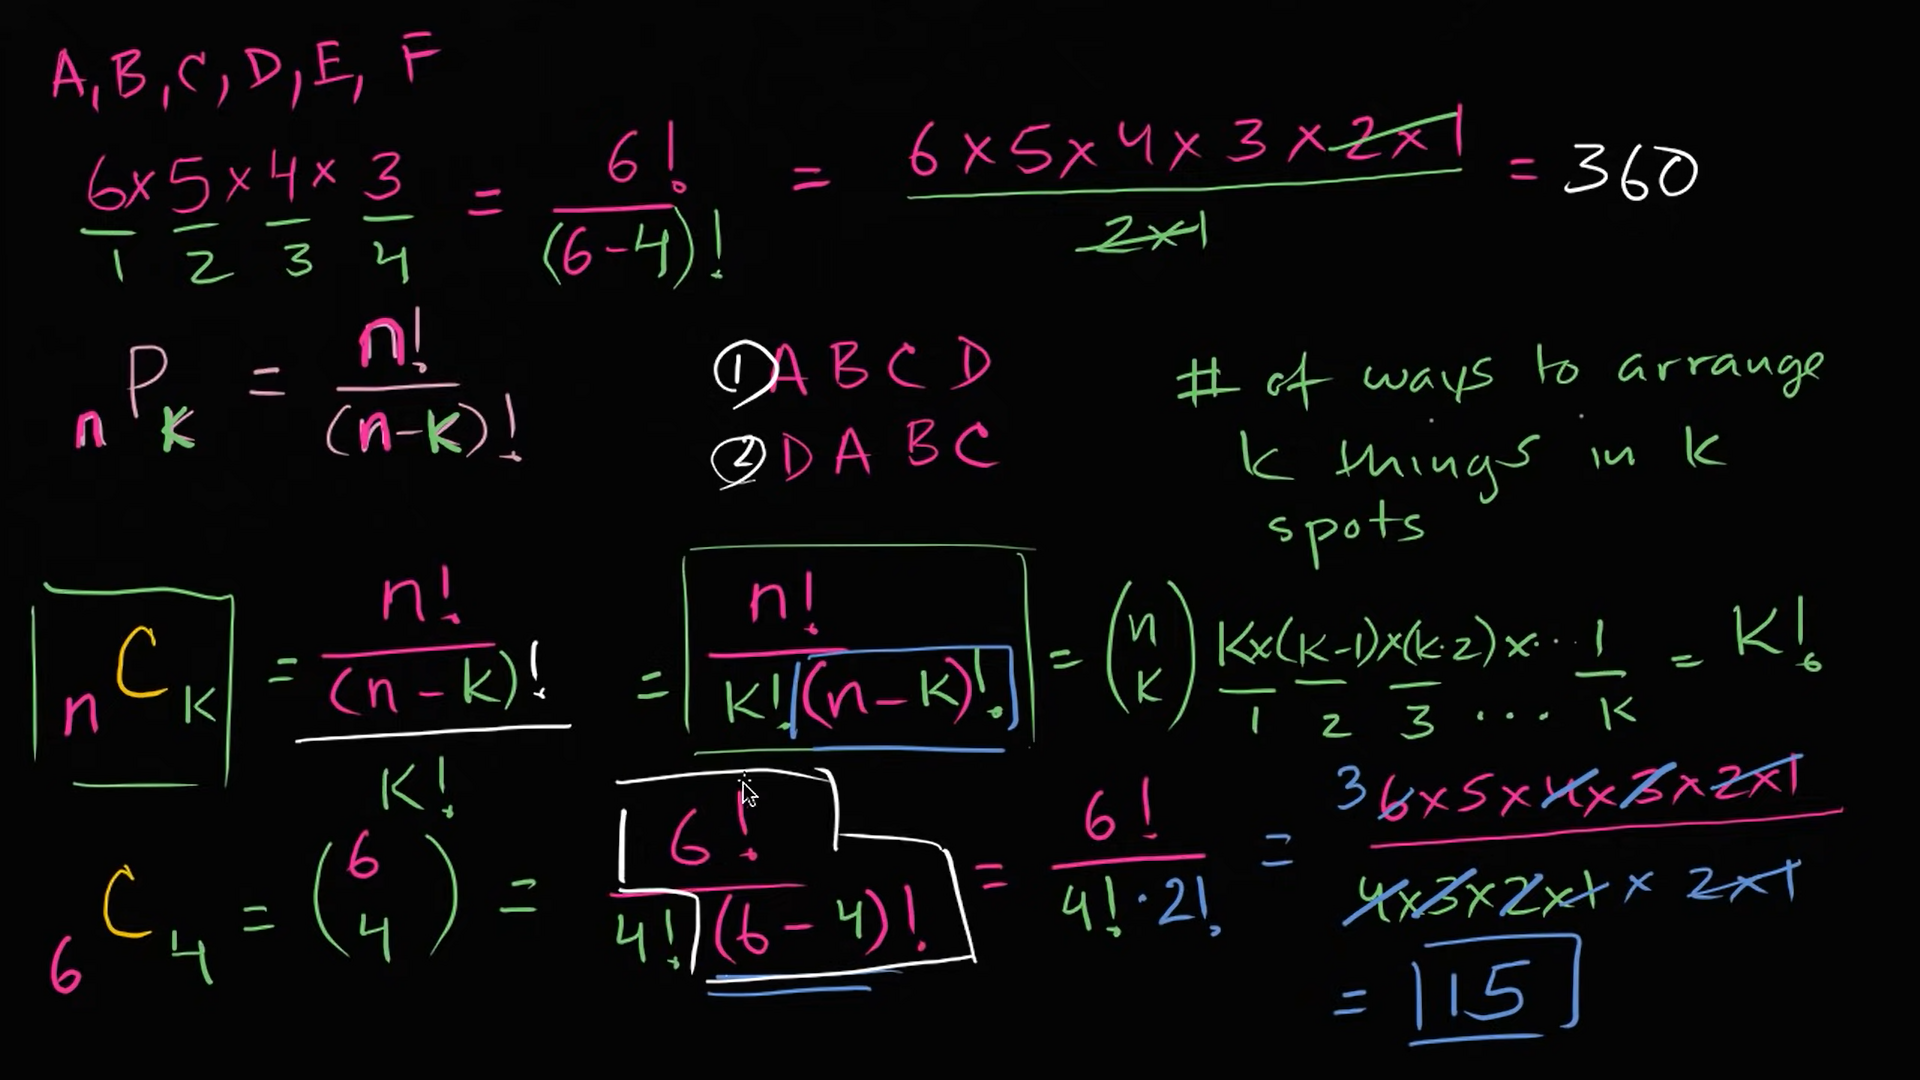 A, B, C, D, E, F
6 × 5 × 4 × 3 = 6! / (6-4)! = 6 × 5 × 4 × 3 × 2 × 1 / 2×1 = 360
1 2 3 4
nPk = n! / (n-k)!
① A B C D
② D A B C
# of ways to arrange
k things in k
spots
nCk = n! / (n-k)! / k! = n! / k!(n-k)! = (n k)
k×(k-1)×(k-2)×...1 = k!
1 2 3 ... k
6C4 = (6 4) = 6! / 4!(6-4)! = 6! / 4!·2! = 3 6×5×4×3×2×1 / 4×3×2×1 × 2×1
= 15